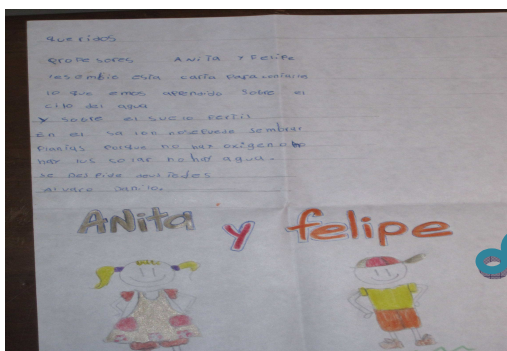 queridos
profesores Anita y Felipe
les embio esta carta para contarles
lo que emos aprendido sobre el
ciclo del agua
y sobre el suelo Fertil
en el salon nosepuede sembrar
Plantas Porque no hay oxigeno no
hay lus solar no hay agua.
se despide de ustedes
alvaro Danilo.
ANita y felipe